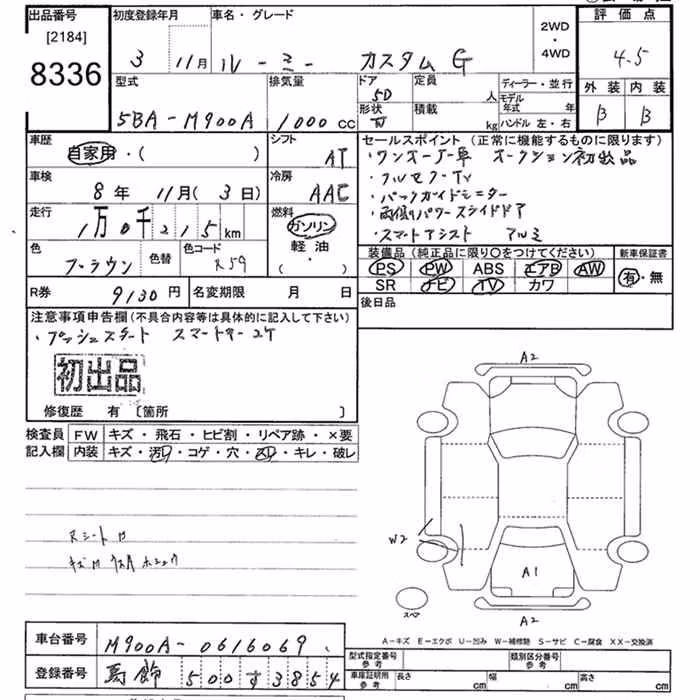 出品番号
[2184]
8336
初度登録年月
3 11月
車名・グレード
ルーミー カスタムG
2WD
・
4WD
評価点
4.5
外装 内装
B B
型式
5BA-M900A
排気量
1000 cc
ドア
5D
形状
定員
人
積載
kg
ディーラー・並行
モデル年式 年
ハンドル 左・右
車歴
自家用・( )
シフト
AT
車検
8年 11月 (3日)
冷房
AAC
走行
1万0千215km
燃料
ガソリン
軽油
( ・ )
色
ブラウン
色替
色コード
R59
R券
9130円
名変期限 月 日
セールスポイント(正常に機能するものに限ります)
・ワンオーナー車 オークション初出品
・フルセグTV
・バックガイドモニター
・両側パワースライドドア
・スマートアシスト アルミ
装備品(純正品に限り○をつけてください)
PS PW ABS エアB AW
SR ナビ TV カワ
新車保証書
有・無
後日品
注意事項申告欄(不具合内容等は具体的に記入して下さい)
・プッシュスタート スマートキー2ケ
初出品
修復歴 有 〔箇所 〕
検査員記入欄
FW キズ・飛石・ヒビ割・リペア跡・×要
内装 キズ・汚れ・コゲ・穴・スレ・キレ・破レ
Rシート
A2
W2
A1
スペア
A2
A-キズ E-エクボ U-凹み W-補修跡 S-サビ C-腐食 XX-交換済
車台番号
M900A-0616069
登録番号
500 3854
型式指定番号
参考
類別区分番号
参考
車庫証明用
参考
長さ cm
幅 cm
高さ cm